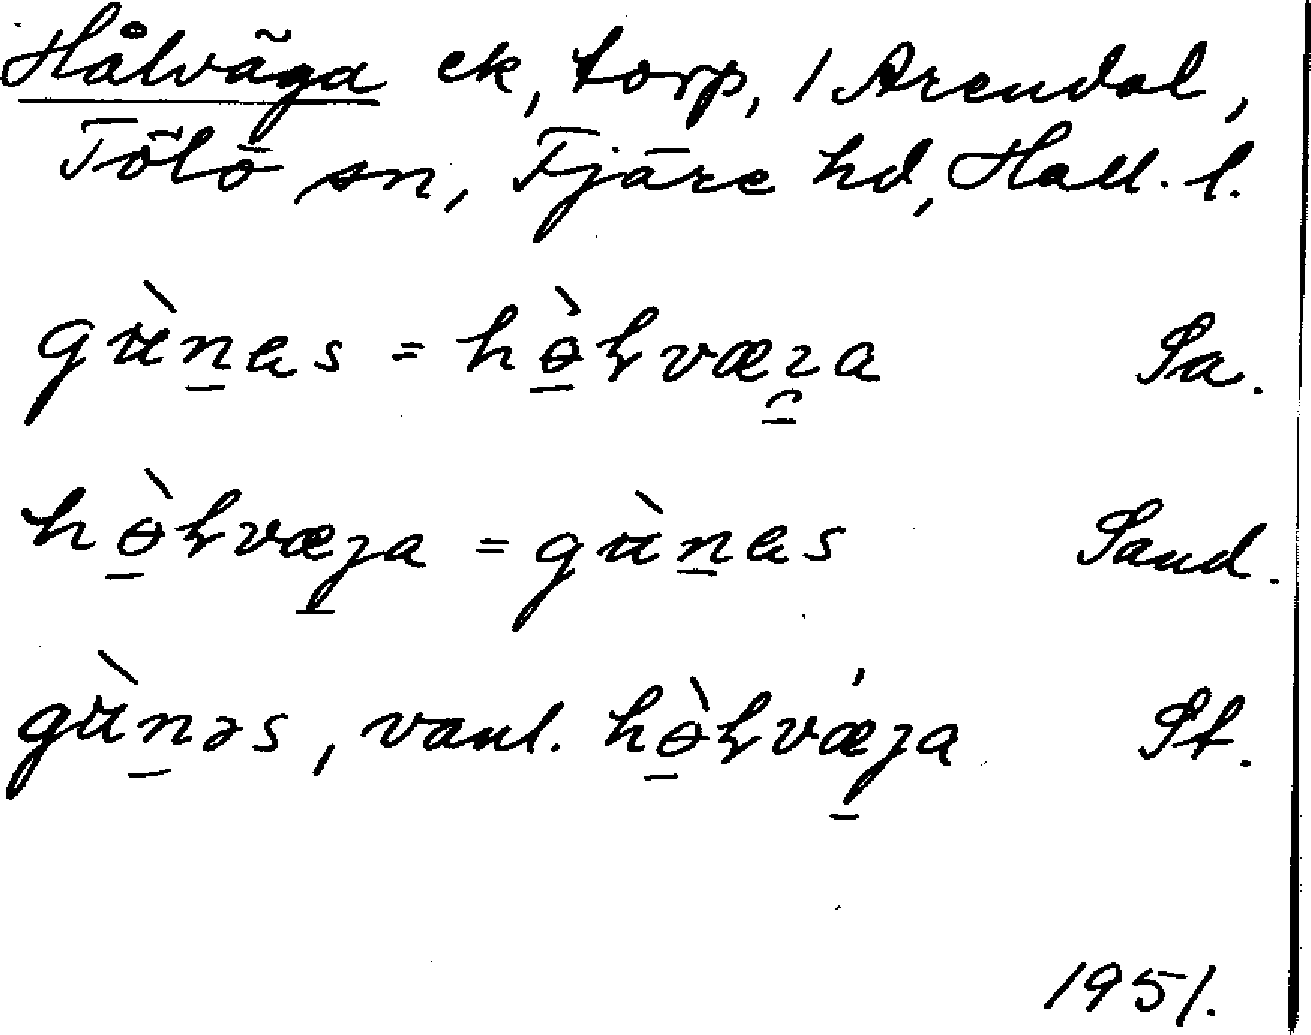 Hålväga ek, torp, / Arendal,
Tölö sn, Fjäre hd, Hall. l.
gùnas = hɵ̀ɽvæɀa Sa.
hɵ̀ɽvæȷa = gùnas Sand.
gùnəs, vanl. hɵ̀ɽvǽȷa St.
1951.